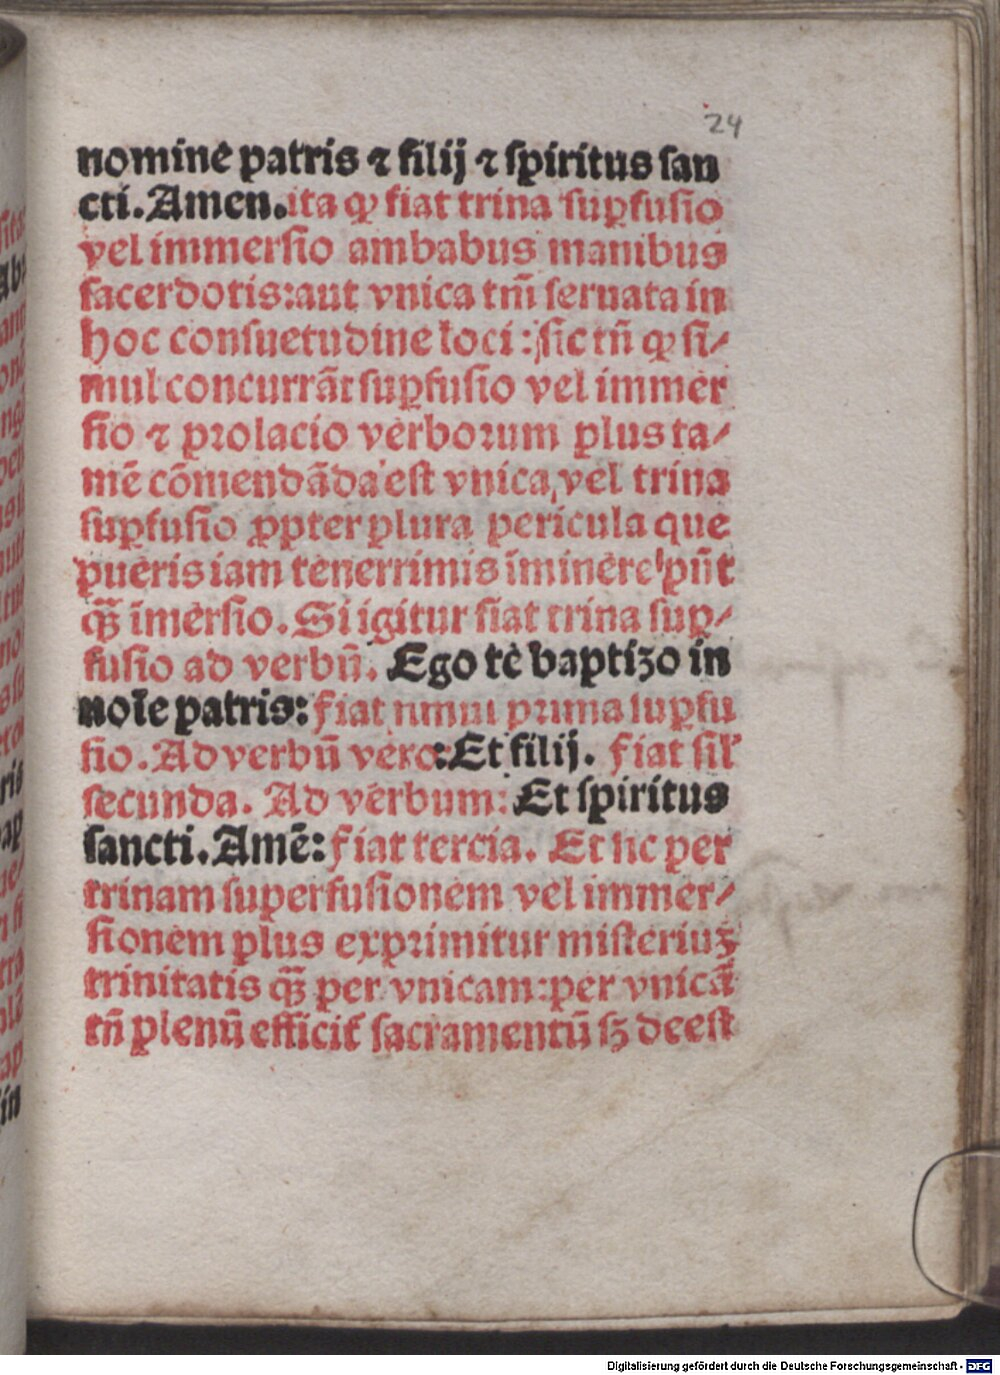 24
nomine patris ⁊ filij ⁊ spiritus san
cti. Amen. ita ꝙ fiat trina suꝑfusio
vel immersio ambabus manibus
sacerdotis: aut vnica tm̄ seruata in
hoc consuetudine loci: sic tn̄ ꝙ si/
mul concurrāt suꝑfusio vel immer
sio ⁊ prolacio verborum plus ta/
mē cōmendāda est vnica, vel trina
suꝑfusio ꝓpter plura pericula que
pueris iam tenerrimis īminere pn̄t
qȝ̄ īmersio. Si igitur fiat trina suꝑ/
fusio ad verbū. Ego te baptizo in
noīe patris: fiat prima suꝑfu
sio. Ad verbū vero: Et filij. fiat sil'
secunda. Ad verbum: Et spiritus
sancti. Amē: fiat tercia. Et sic per
trinam superfusionem vel immer/
sionem plus exprimitur misteriuȝ
trinitatis qȝ̄ per vnicam: per vnicā
tn̄ plenū efficit' sacramentū sȝ deest
Digitalisierung gefördert durch die Deutsche Forschungsgemeinschaft - DFG